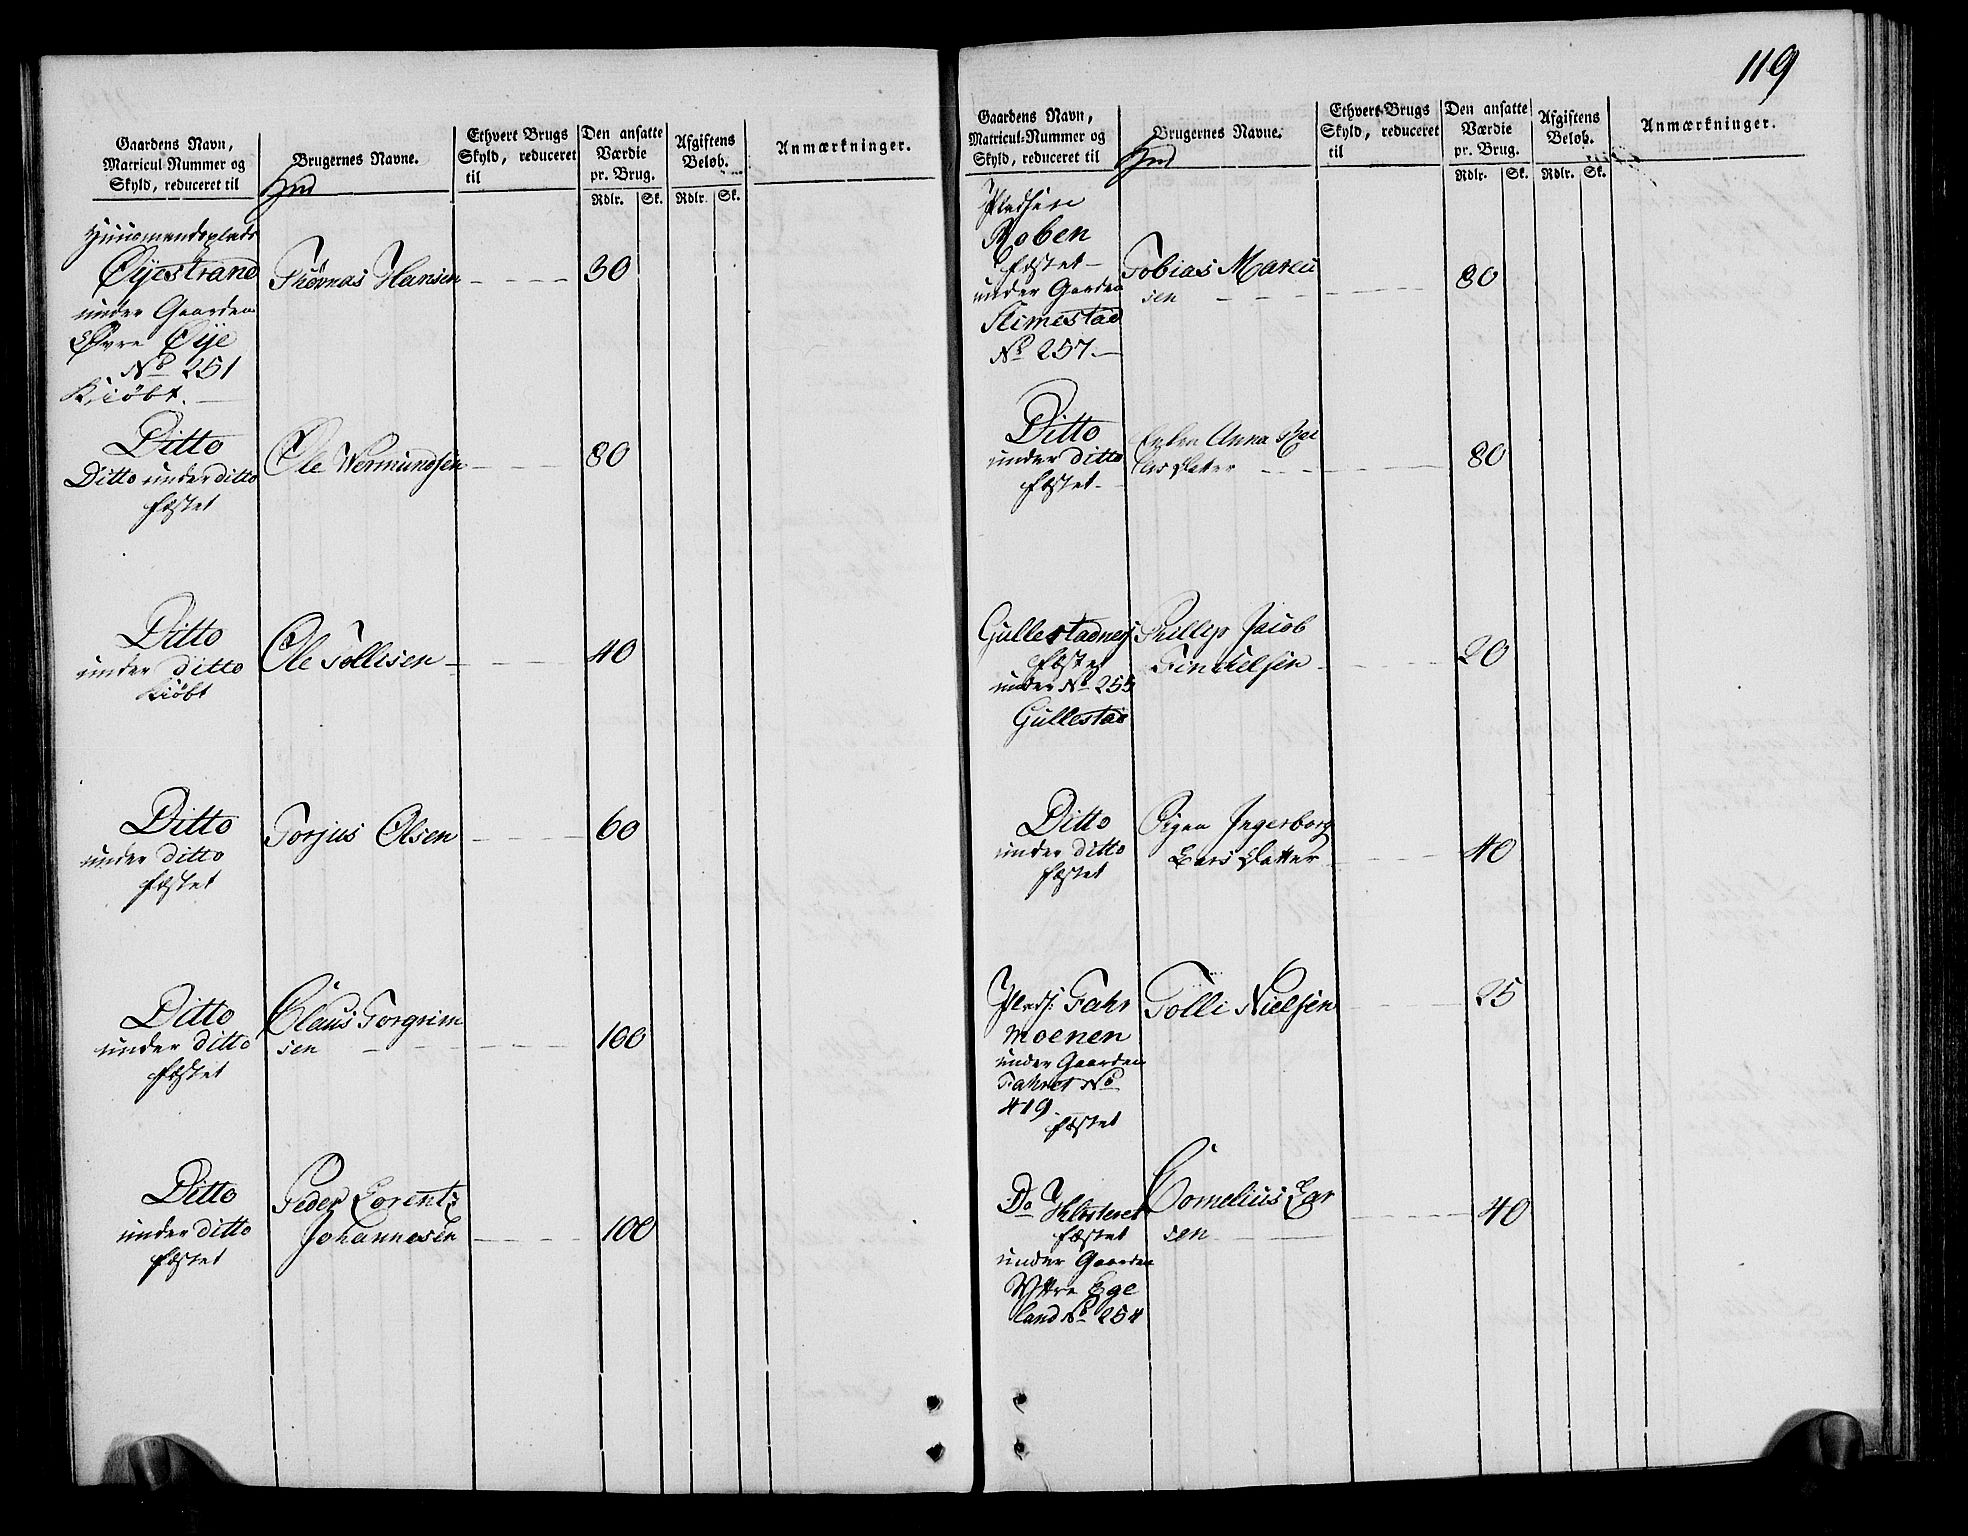 119
Gaardens Navn,
Matricul-Nummer og
Skyld, reduceret til
Brugernes Navne.
Ethvert Brugs
Skyld, reduceret
til
Den ansatte
Værdie
pr. Brug.
Rdlr. Sk.
Afgiftens
Beløb.
Rdlr. Sk.
Anmærkninger.
Huusmandsplads
Øyestrand Thomas Hansen 30
under Gaarden
Øvre Øye
No 251
Kiöbt.
Ditto Ole Wermundsen 80
Ditto under ditto
fæstet
Ditto Ole Tollisen 40
under ditto
Kiöbt
Ditto Torjus Olsen 60
under ditto
fæstet
Ditto Claus Torgrim
under ditto sen 100
fæstet
Ditto Peder Lorentz
under ditto Johannesen 100
fæstet
Gaardens Navn,
Matricul-Nummer og
Skyld, reduceret til
Brugernes Navne.
Ethvert Brugs
Skyld, reduceret
til
Den ansatte
Værdie
pr. Brug.
Rdlr. Sk.
Afgiftens
Beløb.
Rdlr. Sk.
Anmærkninger.
Pladsen
Roben
fæstet Tobias Marcu
under Gaarden sen 80
Slimestad
No 257.
Ditto Enken Anna
under ditto Datter 80
fæstet
Gullestadnes Phillip Jacob
fæstet 20
under No 255
Gullestad
Ditto Pigen Ingerborg
under ditto Lars Datter 40
fæstet
Plads. Fahr Tolli Nielsen 25
moenen
under Gaarden
Fahret No
419.
fæstet
Do Cornelius Lar
fæstet sen 40
under Gaarden
Yttre Ege
land No 254